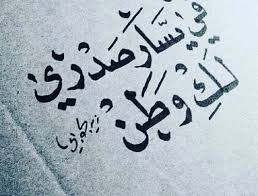 فِي يَسَارِ صَدْرِي
لَكِ وَطَنٌ